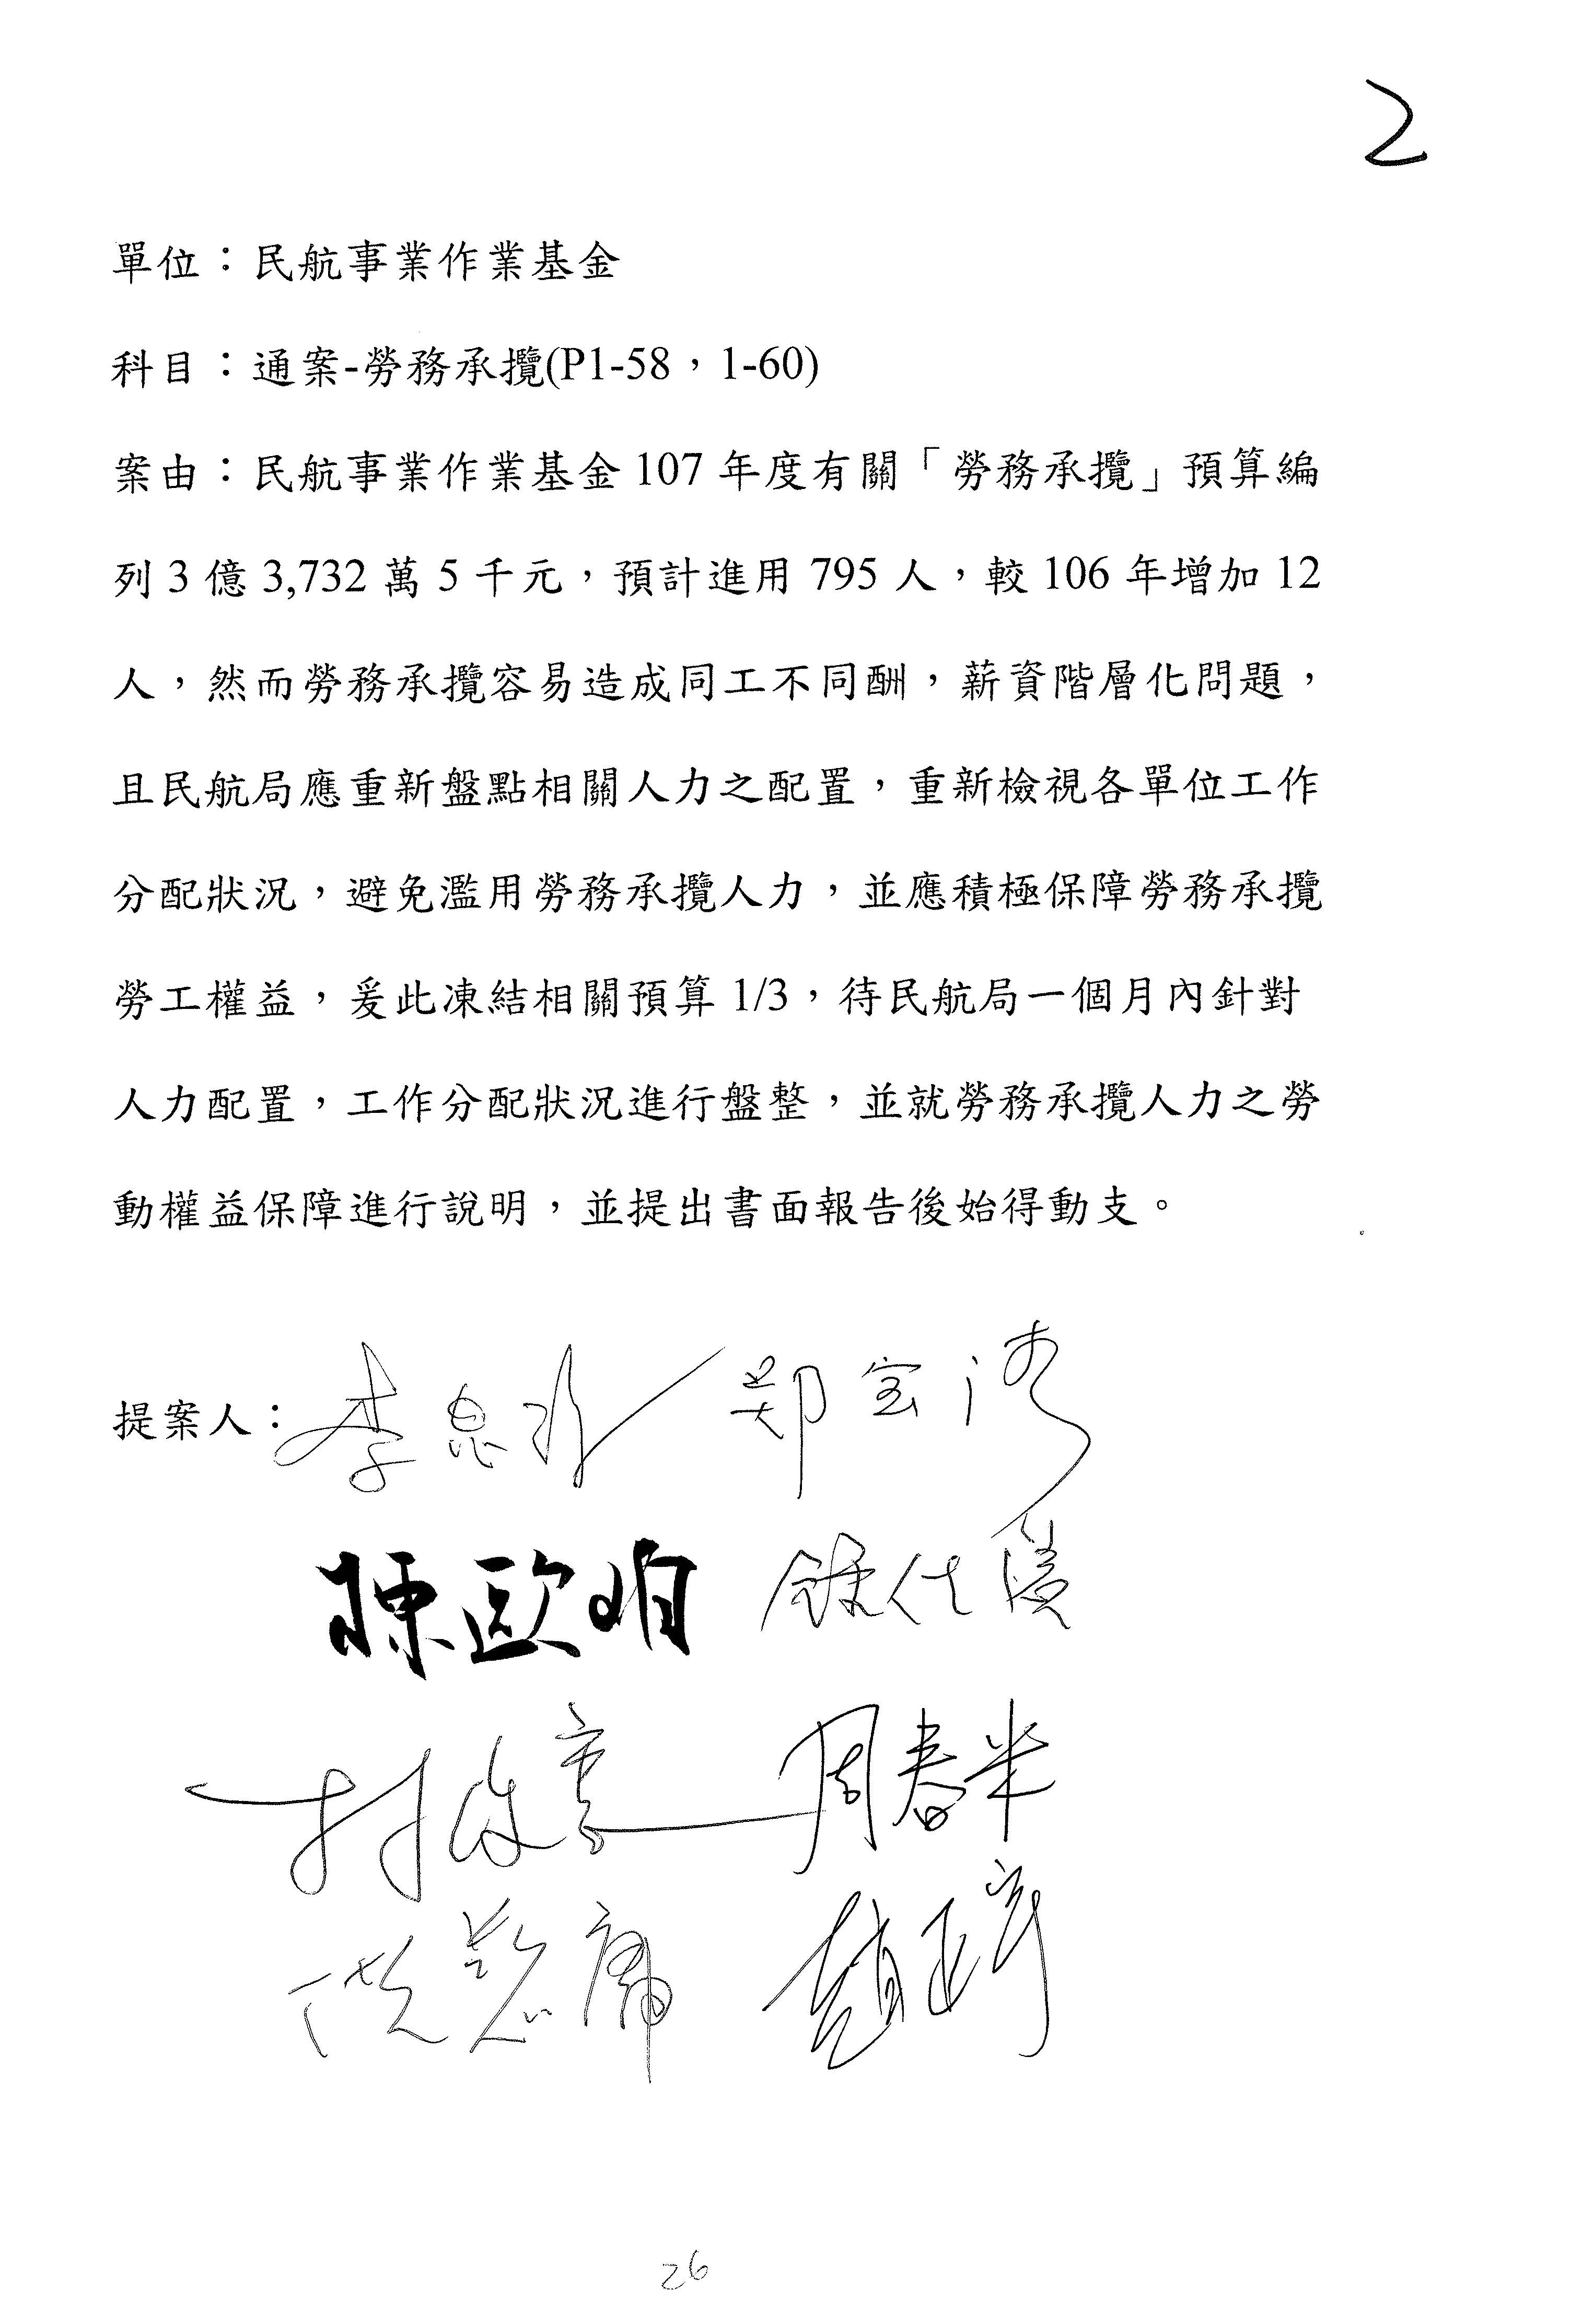 2
單位：民航事業作業基金
科目：通案-勞務承攬(P1-58，1-60)
案由：民航事業作業基金 107 年度有關「勞務承攬」預算編
列 3 億 3,732 萬 5 千元，預計進用 795 人，較 106 年增加 12
人，然而勞務承攬容易造成同工不同酬，薪資階層化問題，
且民航局應重新盤點相關人力之配置，重新檢視各單位工作
分配狀況，避免濫用勞務承攬人力，並應積極保障勞務承攬
勞工權益，爰此凍結相關預算 1/3，待民航局一個月內針對
人力配置，工作分配狀況進行盤整，並就勞務承攬人力之勞
動權益保障進行說明，並提出書面報告後始得動支。
提案人： 鄭宝清
陳歐珀
林俊憲 周春米
趙正宇
26